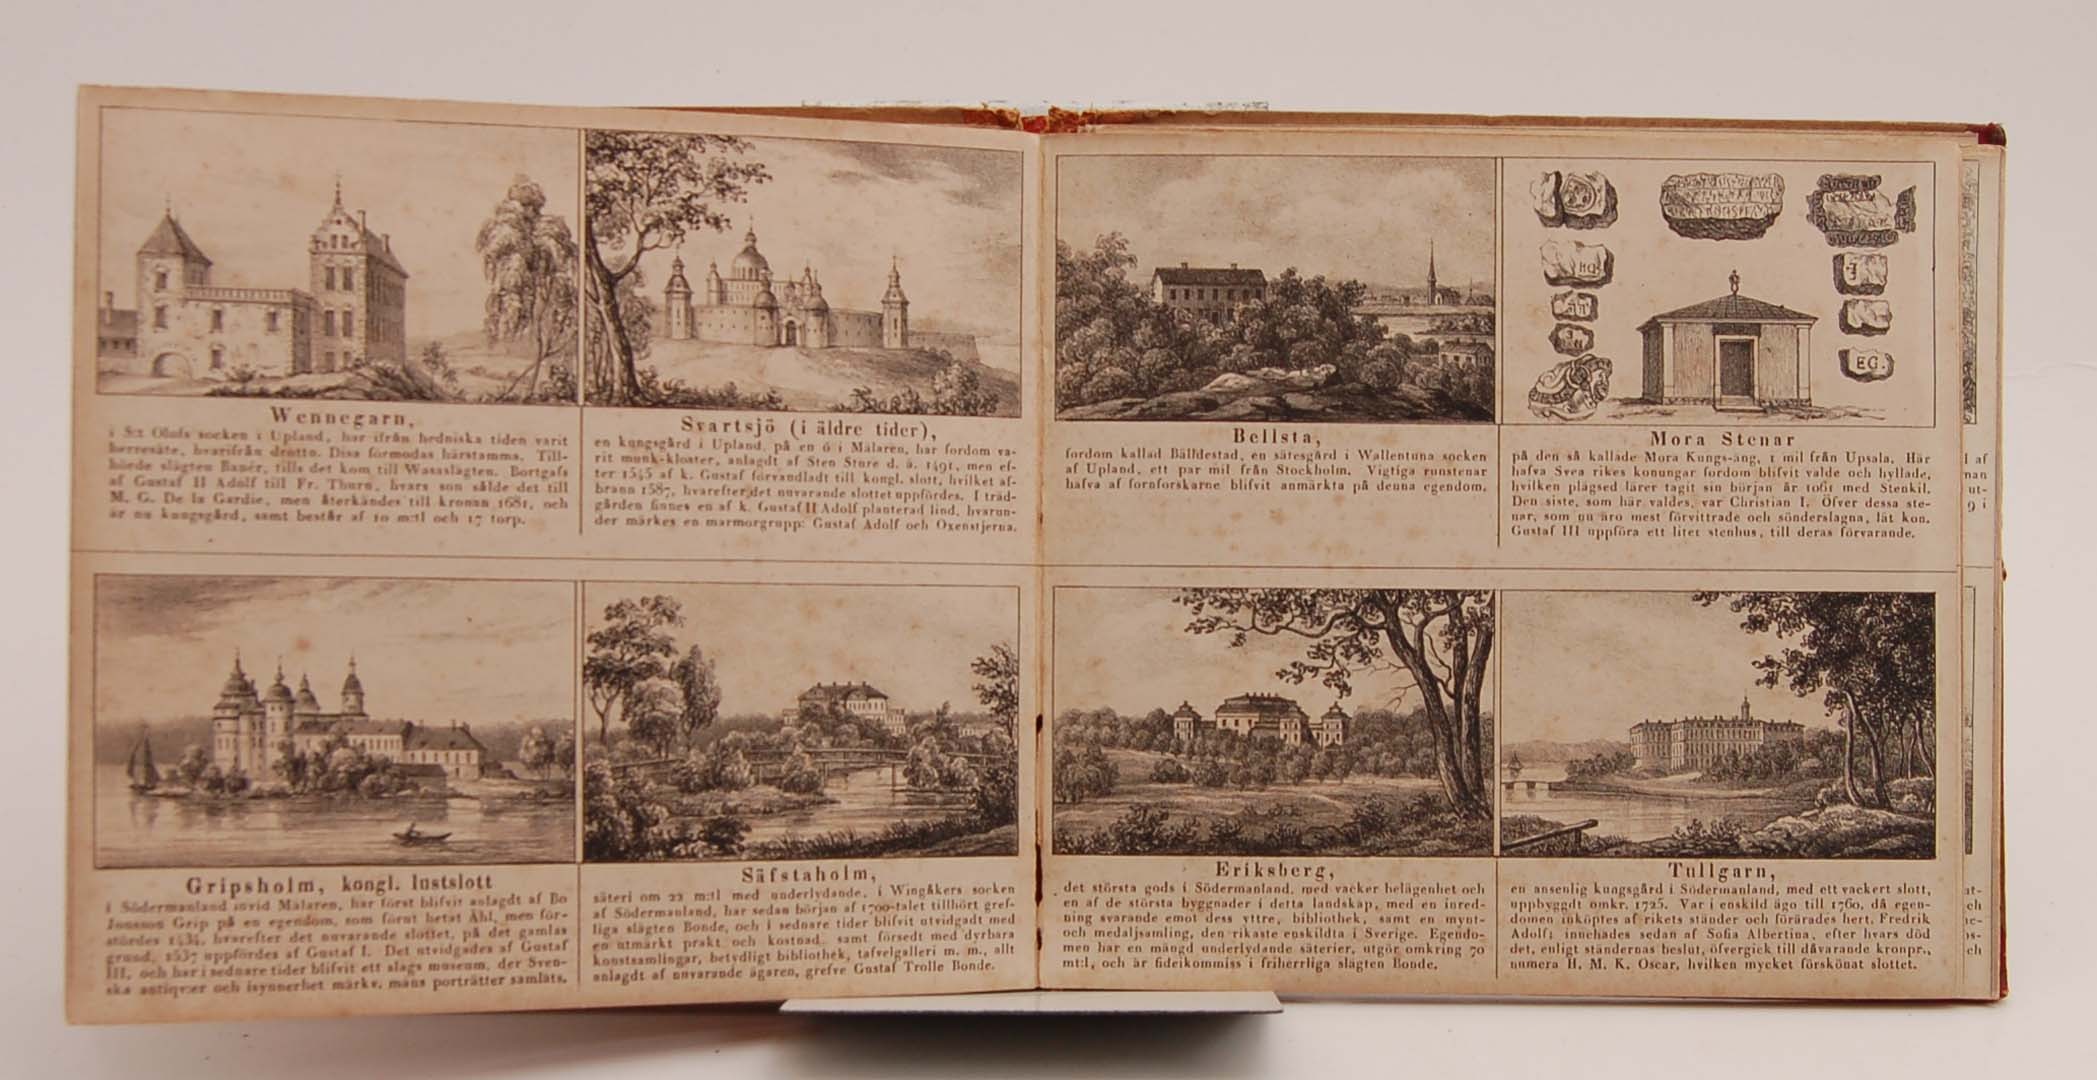 Wennegarn,
i S:t Olofs socken i Upland, har ifrån hedniska tiden varit
herresäte, hvarifrån drottn. Disa förmodas härstamma. Till-
hörde slägten Banér, tills det kom till Wasaslägten. Bortgafs
af Gustaf II Adolf till Fr. Thurn, hvars son sålde det till
M. G. De la Gardie, men återkändes till kronan 1681, och
är nu kungsgård, samt består af 10 m:tl och 17 torp.
Svartsjö (i äldre tider),
en kungsgård i Upland, på en ö i Mälaren, har fordom va-
rit munk-kloster, anlagdt af Sten Sture d. ä. 1491, men ef-
ter 1545 af k. Gustaf förvandladt till kongl. slott, hvilket af-
brann 1587, hvarefter det nuvarande slottet uppfördes. I träd-
gården finnes en af k. Gustaf II Adolf planterad lind, hvarun-
der märkes en marmorgrupp: Gustaf Adolf och Oxenstjerna.
Bellsta,
fordom kallad Bällhdestad, en sätesgård i Wallentuna socken
af Upland, ett par mil från Stockholm. Vigtiga runstenar
hafva af fornforskarne blifvit anmärkta på denna egendom.
HQ
EG.
Mora Stenar
på den så kallade Mora Kungs-äng, 1 mil från Upsala. Här
hafva Svea rikes konungar fordom blifvit valde och hyllade,
hvilken plägsed lärer tagit sin början år 1061 med Stenkil.
Den siste, som här valdes, var Christian I. Öfver dessa ste-
nar, som nu äro mest förvittrade och sönderslagna, lät kon.
Gustaf III uppföra ett litet stenhus, till deras förvarande.
Gripsholm, kongl. lustslott
i Södermanland invid Mälaren, har först blifvit anlagdt af Bo
Jonsson Grip på en egendom, som förut hetat Ähl, men för-
stördes 1434, hvarefter det nuvarande slottet, på det gamlas
grund, 1537 uppfördes af Gustaf I. Det utvidgades af Gustaf
III, och har i sednare tider blifvit ett slags museum, der Sven-
ska antiqv:er och isynnerhet märkv. mäns porträtter samlats.
Säfstaholm,
säteri om 22 m:tl med underlydande, i Wingåkers socken
af Södermanland, har sedan början af 1700-talet tillhört gref-
liga slägten Bonde, och i sednare tider blifvit utvidgadt med
en utmärkt prakt och kostnad, samt försedt med dyrbara
konstsamlingar, betydligt bibliothek, tafvelgalleri m. m., allt
anlagdt af nuvarande ägaren, grefve Gustaf Trolle Bonde.
Eriksberg,
det största gods i Södermanland, med vacker belägenhet och
en af de största byggnader i detta landskap, med en inred-
ning svarande emot dess yttre, bibliothek, samt en mynt-
och medaljsamling, den rikaste enskildta i Sverige. Egendo-
men har en mängd underlydande säterier, utgör omkring 70
mt:l, och är fideikommiss i friherrliga slägten Bonde.
Tullgarn,
en ansenlig kungsgård i Södermanland, med ett vackert slott,
uppbyggdt omkr. 1725. Var i enskild ägo till 1760, då egen-
domen inköptes af rikets ständer och förärades hert. Fredrik
Adolf; innehades sedan af Sofia Albertina, efter hvars död
det, enligt ständernas beslut, öfvergick till dåvarande kronpr.,
numera H. M. K. Oscar, hvilken mycket förskönat slottet.